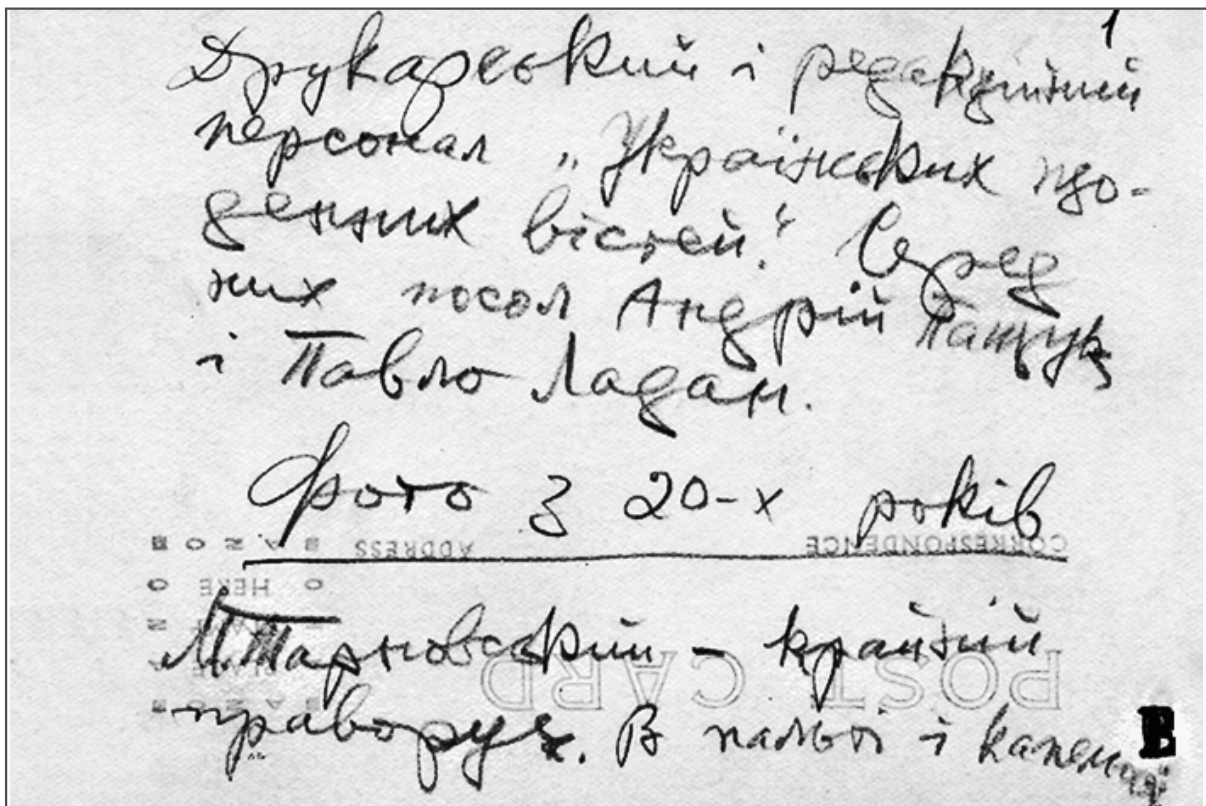 1
Друкарський і редакційний
персонал „Українських що-
денних вістей." Серед
них посол Андрій Пащук
і Павло Ладан.
Фото з 20-х років
CORRESPONDENCE ADDRESS
HERE
М. Тарновський – крайній
POST CARD
праворуч. В пальті і капелюсі
B